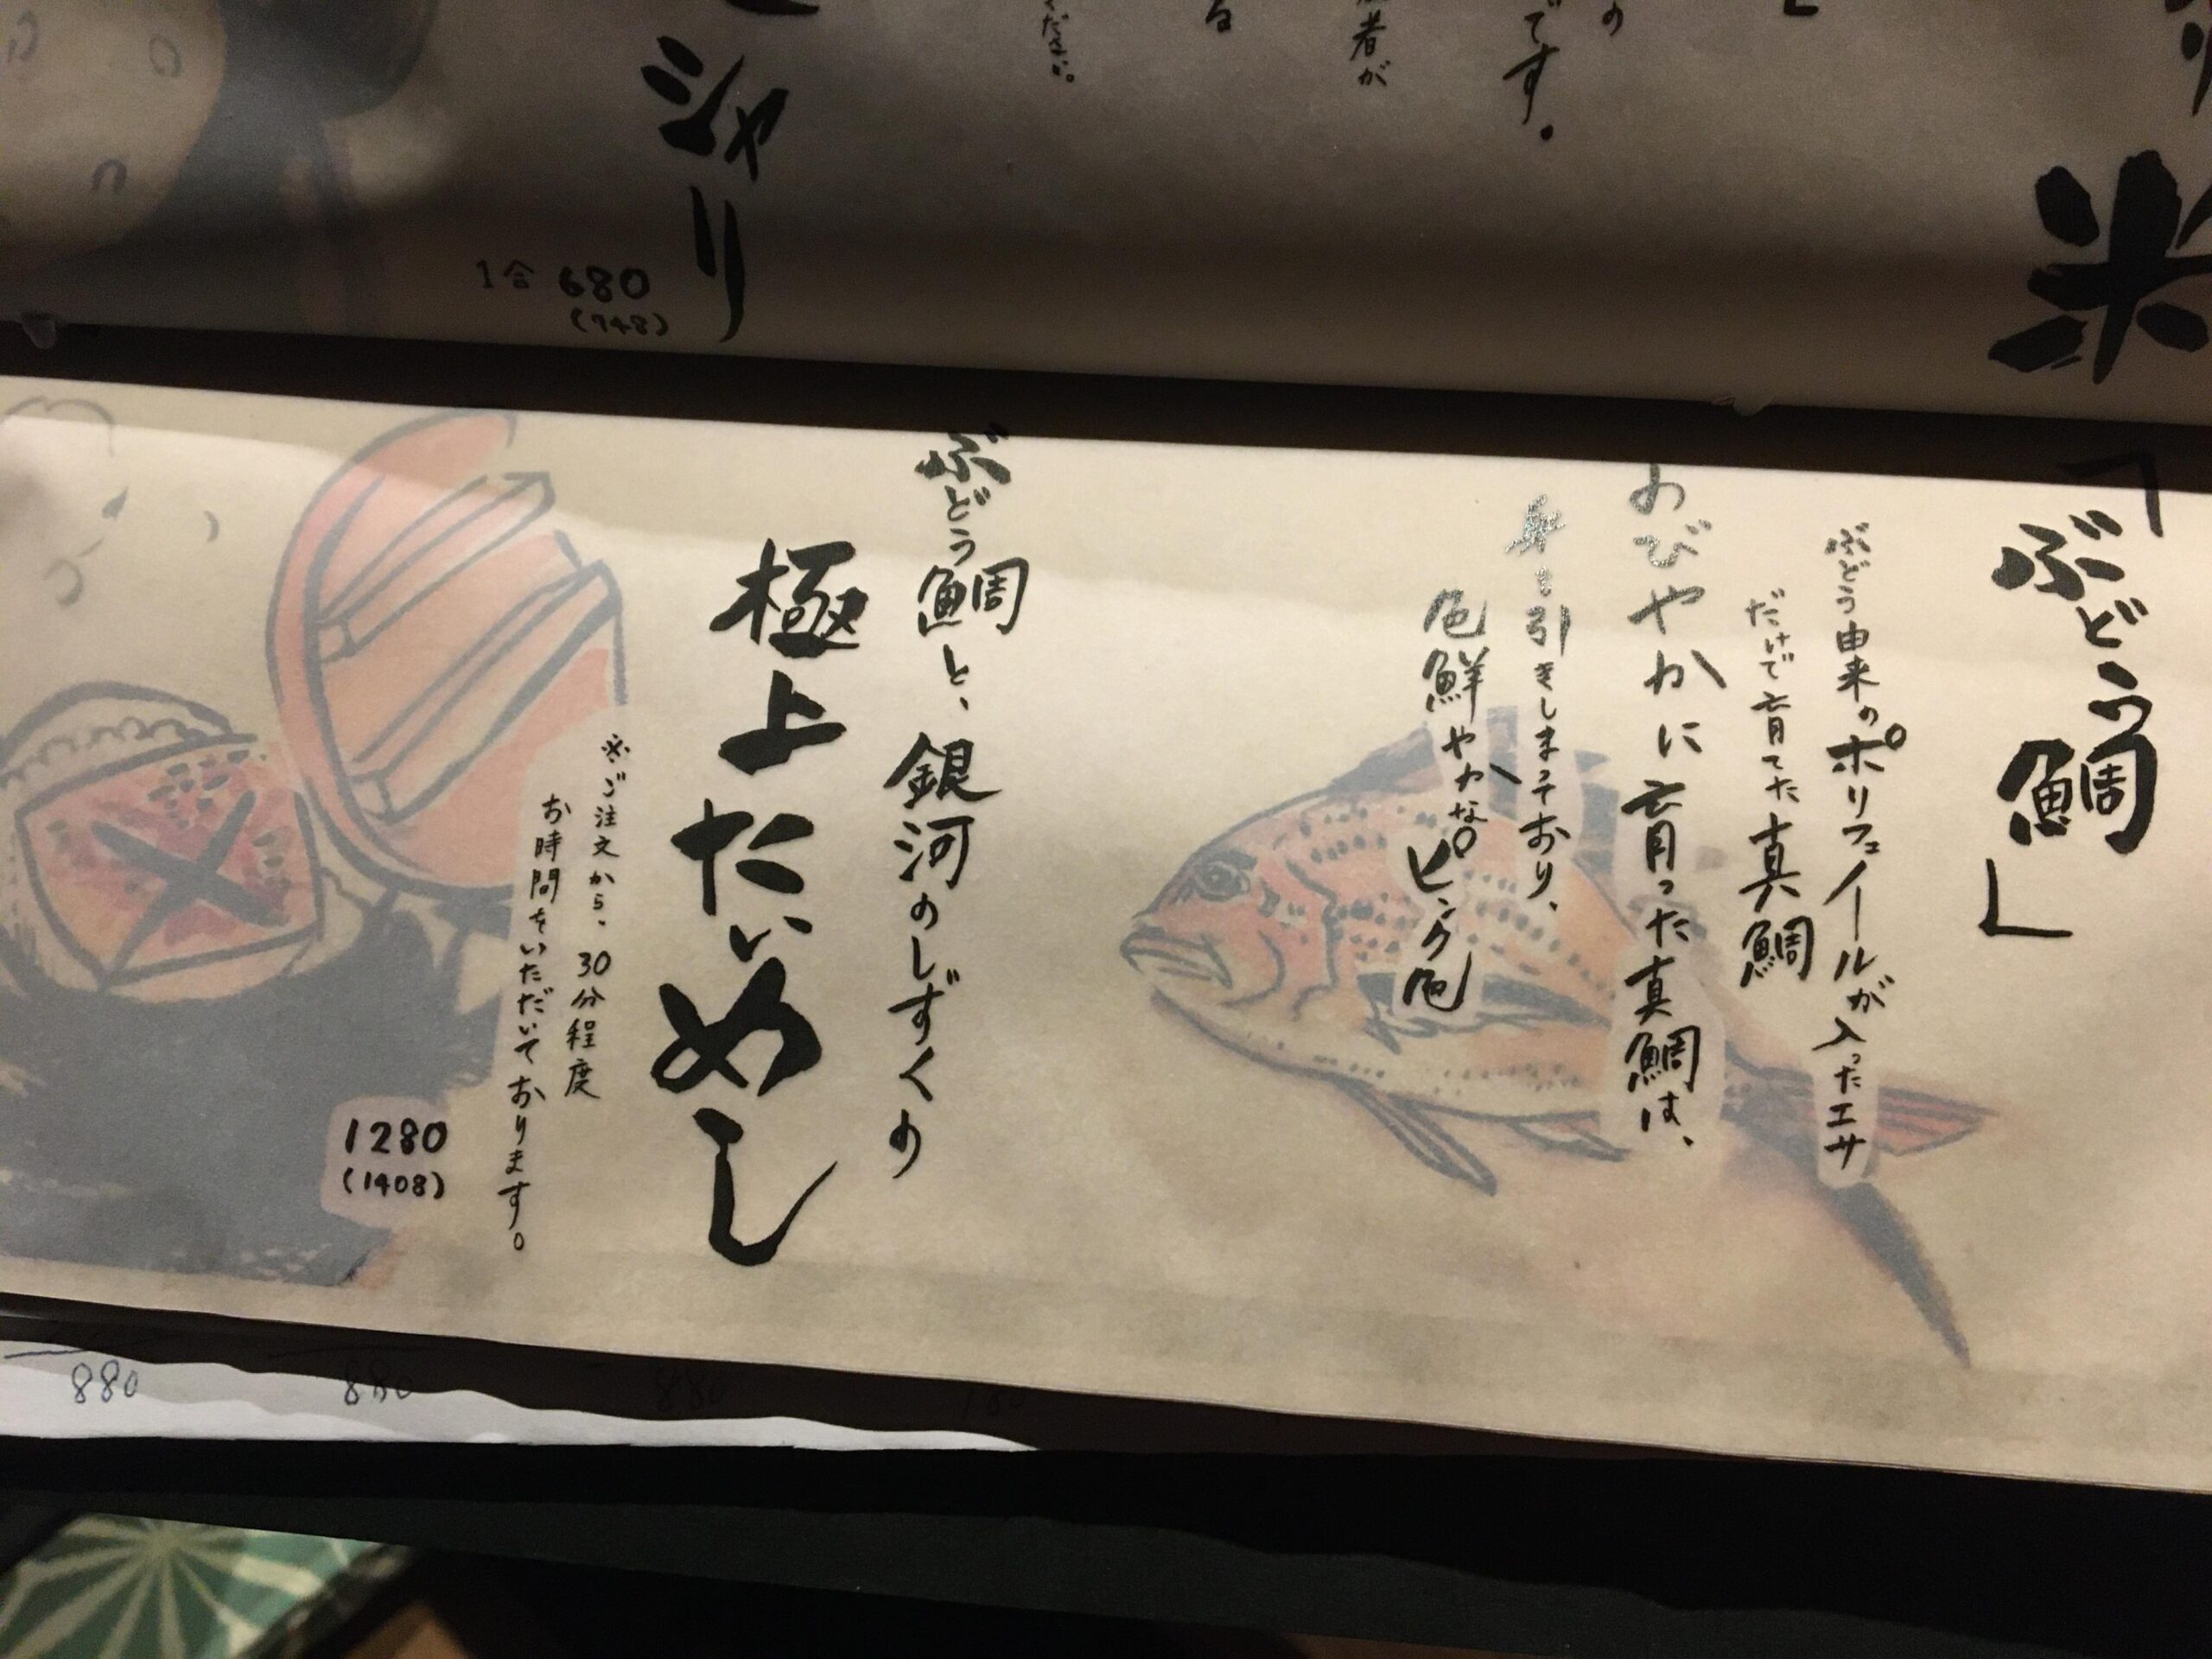 米
です。
者が
ください。
シャリ
1合 680
(748)
「ぶどう鯛」
ぶどう由来のポリフェノールが入ったエサ
だけで育てた真鯛
おびやかに育った真鯛は、
身も引きしまっており、
色鮮やかなピンク色
ぶどう鯛と、銀河のしずくの
極上たいめし
※ご注文から、30分程度
お時間をいただいております。
1280
(1408)
880
880
880